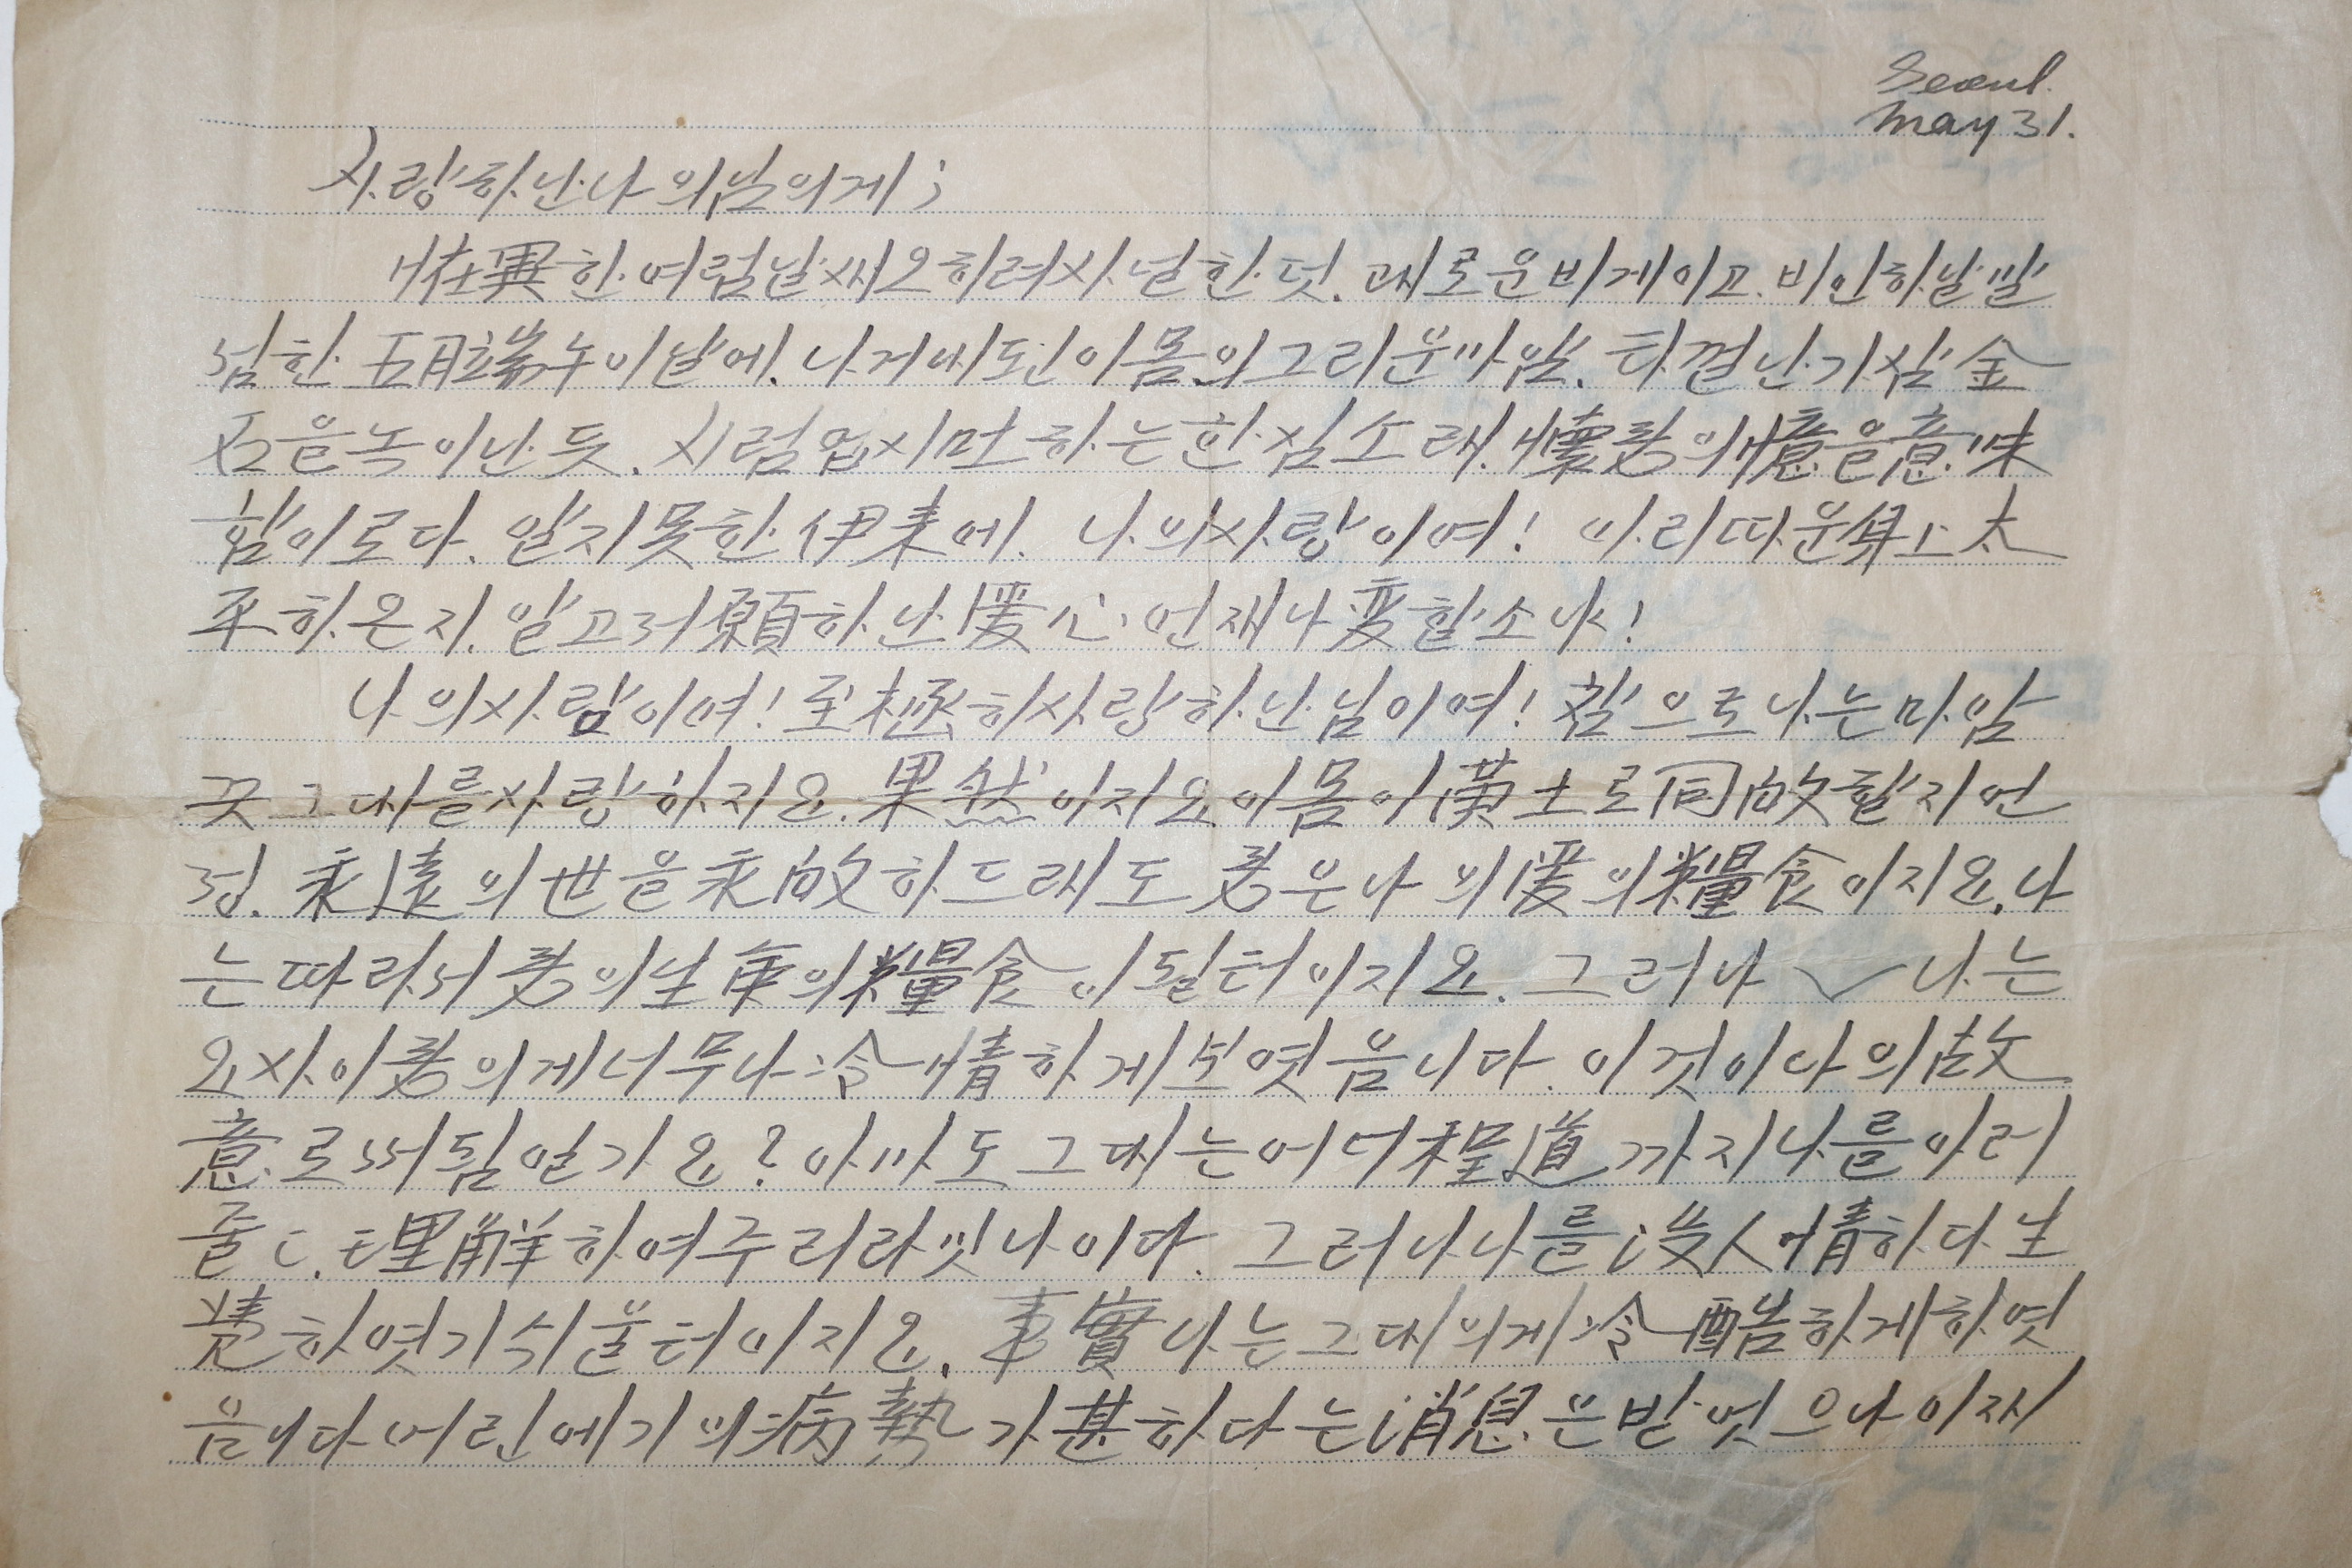 Seoul.
May 31.
사랑하난나의님의게;
怪異한여럼날쌔오히려사널한덧. 괴로운비게이고. 비인하날말
섬한 五月端午이날에. 나거네된이몸의그리운마암. 타껸난가삼金
石을녹이난듯. 시럼업시먼하는한심소래. 懷君의憶을意味
함이로다. 알지못한伊来에. 나의사랑이여! 아리따운身上太
平하온지. 알고저願하난愛心언재나変할소냐!
나의사람이여! 至極히사랑하난님이여! 참으로나는마암
끗그대를사랑하지요. 果然이지요이몸이黄土로同故할지언
정. 永遠의世을永故하드래도君은나의愛의糧食이지요. 나
는따라서君의生命의糧食이될터이지요. 그러나 나는
요사이君의게너무나冷情하게보엿음니다. 이것이나의故
意로써됨일가요? 아마도그대는어너程道까지나를아러
줄 理解하여주리라밋나이다. 그러나나를沒人情하다生
覺하엿기쉬울터이지요. 事實나는그대의게冷酷하게하엿
음니다어린에기의病勢가甚하다는消息은받엇으나이재